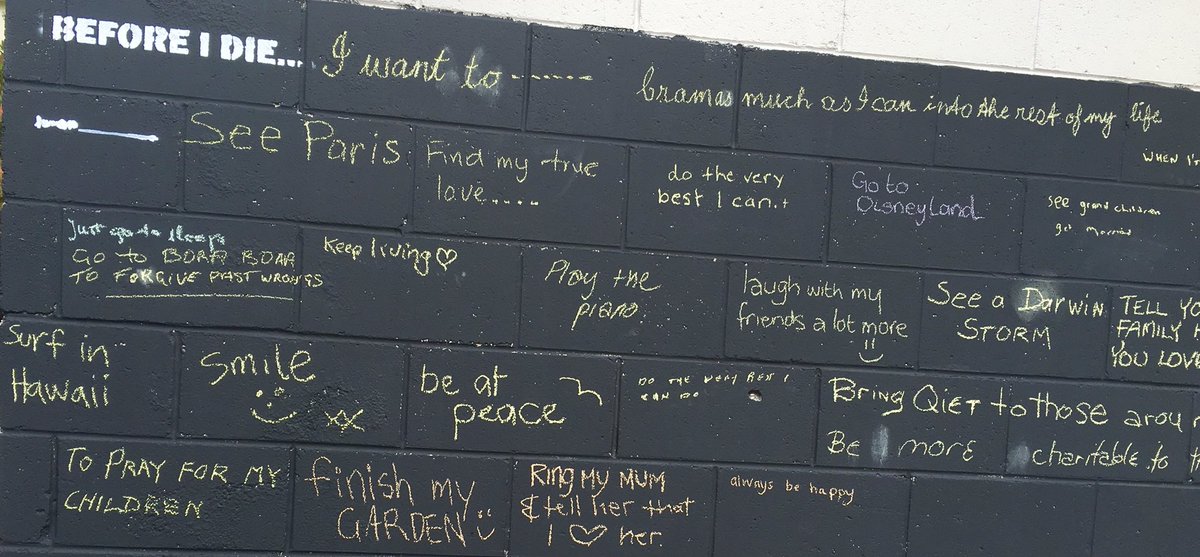 BEFORE I DIE...
I want to.......
cram as much as I can into the rest of my life
See Paris
Find my true
love....
do the very
best I can.+
Go to
Disneyland
see grand children
get married
WHEN I'
Just go to sleep
GO TO BORA BORA
TO FORGIVE PAST WRONGS
Keep living ♡
Play the
piano
laugh with my
friends a lot more
See a DARWIN
STORM
TELL YO
FAMILY
YOU LOVE
Surf in
Hawaii
smile
xx
be at
peace
DO THE VERY BEST I
CAN DO
BRING QIET to those arou
BE more charitable to th
TO PRAY FOR MY
CHILDREN
finish my
GARDEN
RING MY MUM
& tell her that
I ♡ her.
always be happy